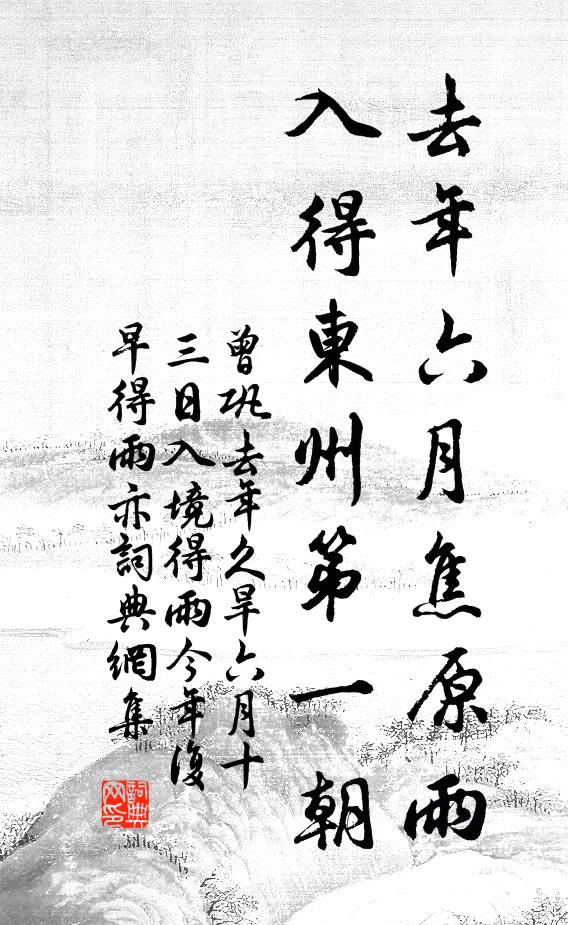 去年六月焦原雨
入得東州第一朝
曾巩去年久旱六月十
三日入境得雨今年復
早得雨亦詞典網集
詞典网印